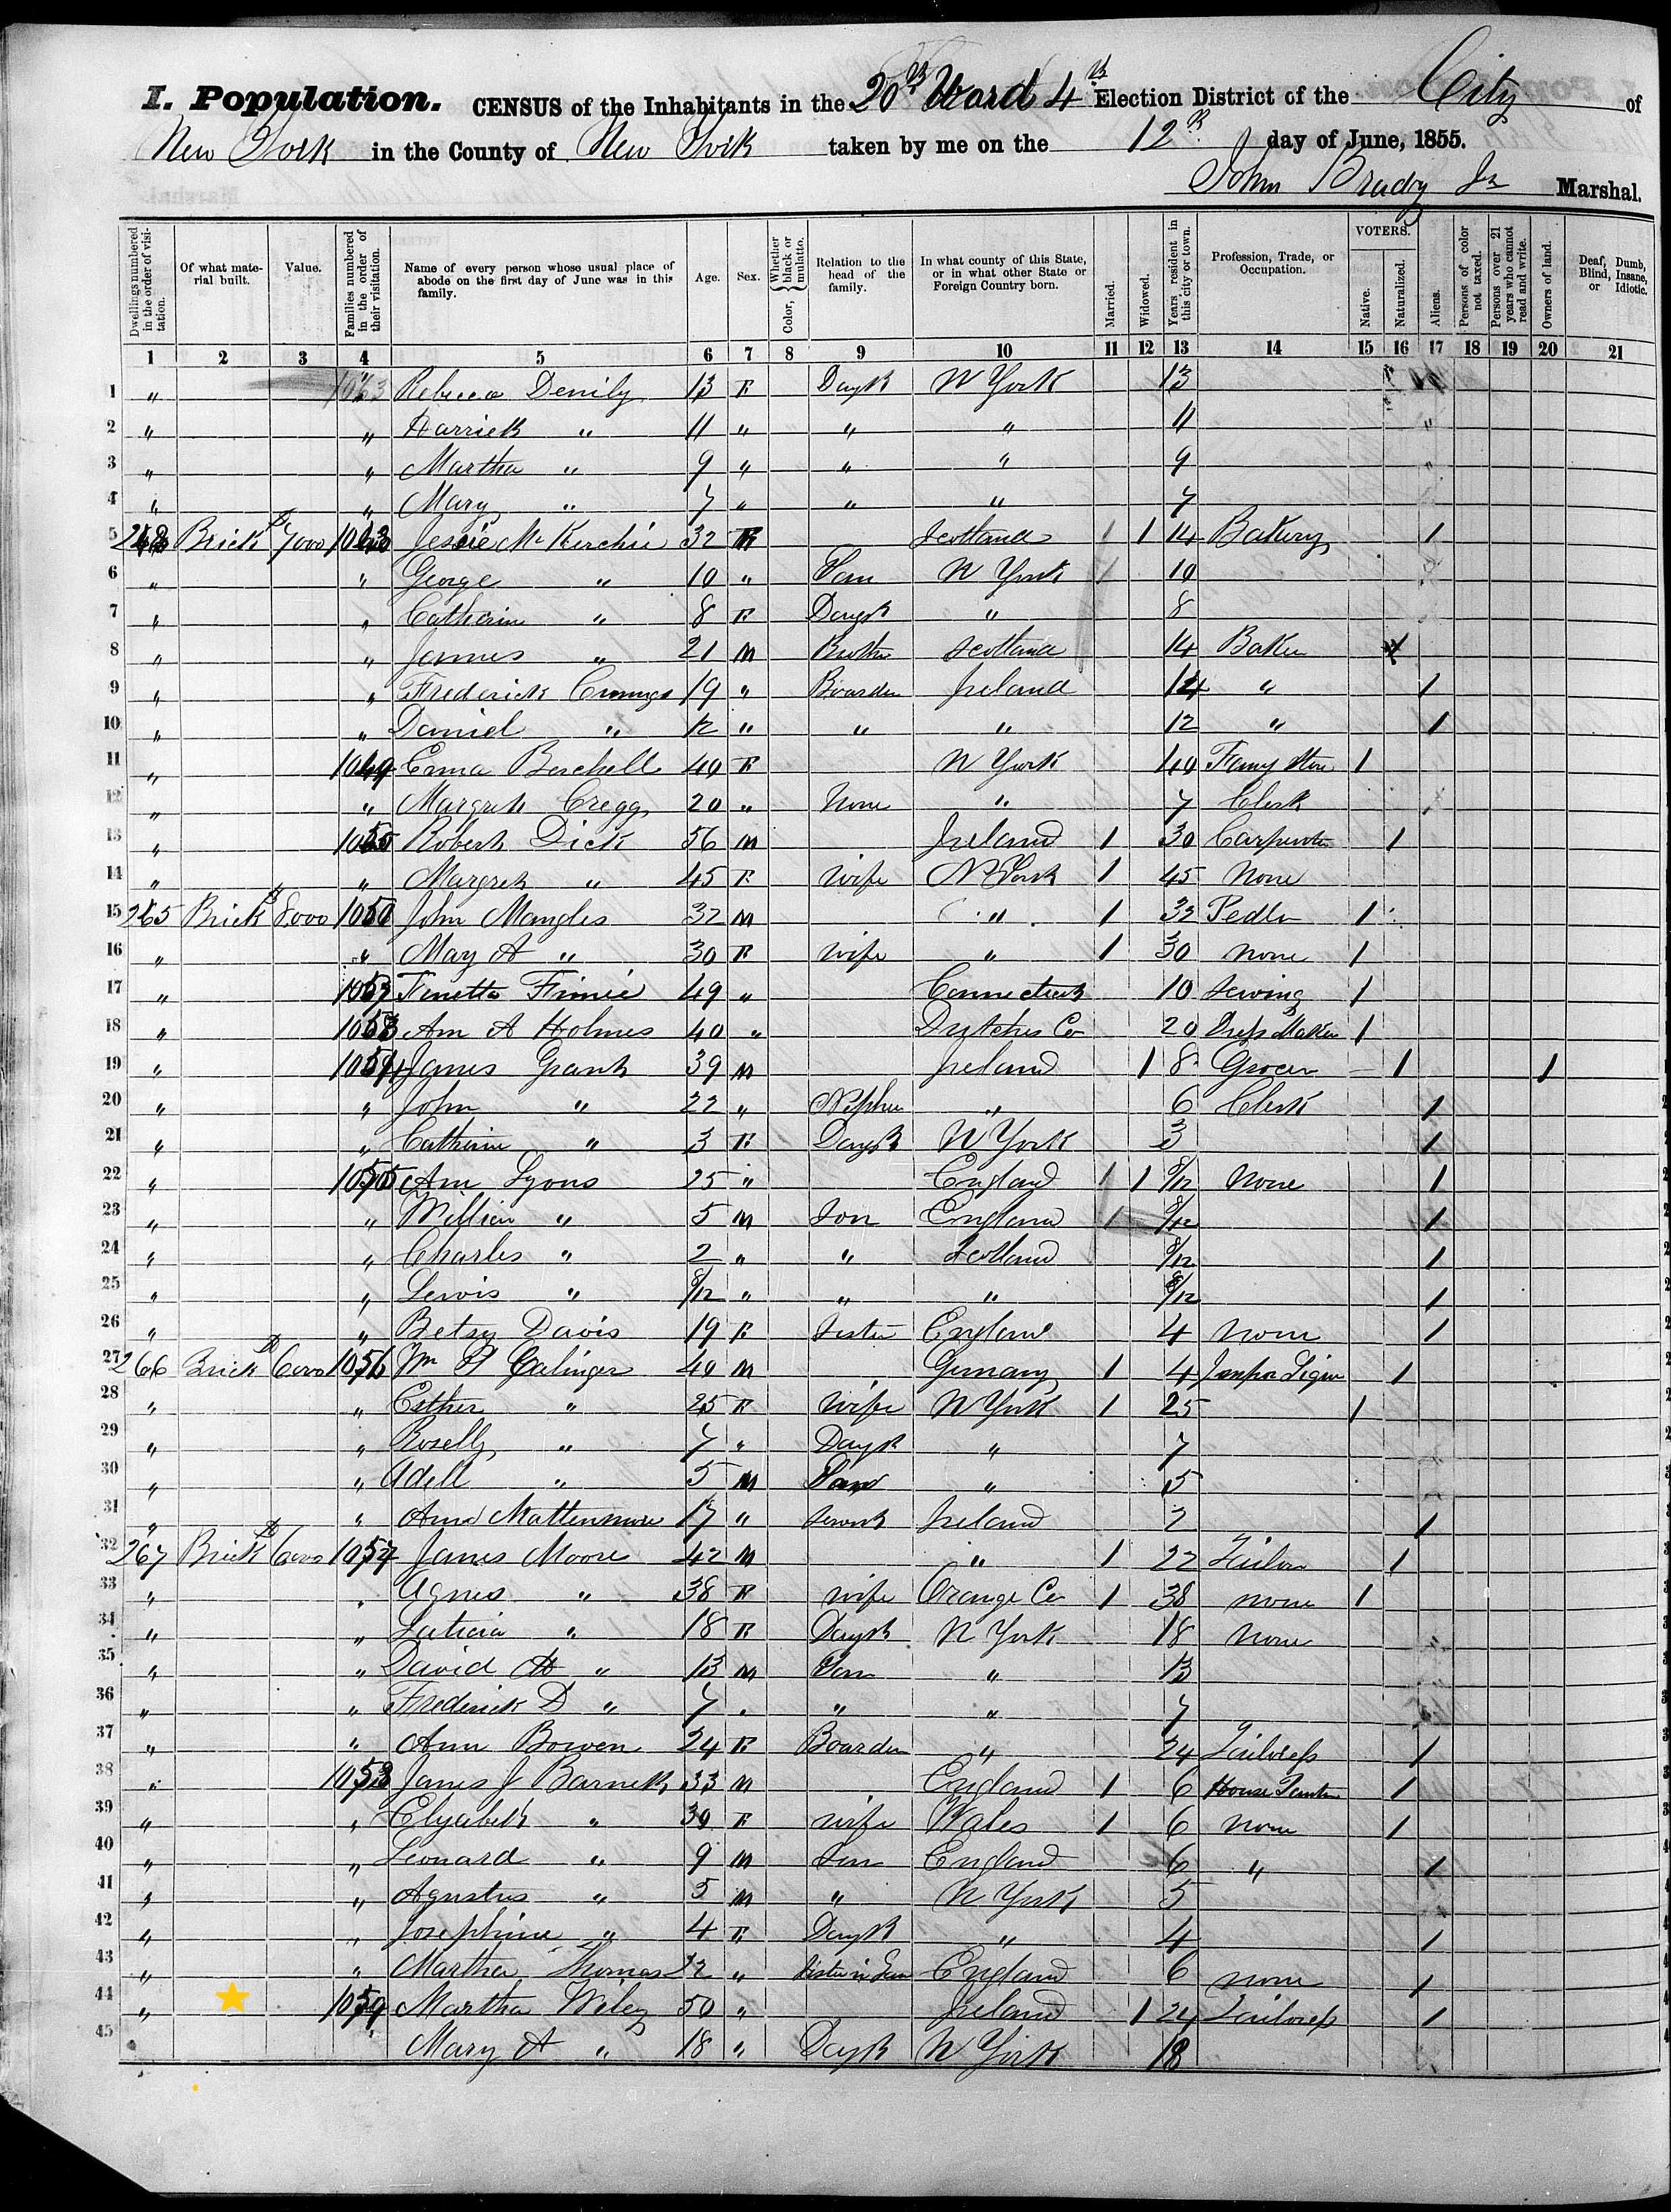 I. Population. CENSUS of the Inhabitants in the 20th Ward 4th Election District of the City of
New York in the County of New York taken by me on the 12th day of June, 1855.
John Brady Jr Marshal.
Dwellings numbered in the order of visitation. Of what material built. Value. Families numbered in the order of their visitation. Name of every person whose usual place of abode on the first day of June was in this family. Age. Sex. Color, Whether black or mulatto. Relation to the head of the family. In what county of this State, or in what other State or Foreign Country born. Married. Widowed. Years resident in this city or town. Profession, Trade, or Occupation. VOTERS. Native. Naturalized. Aliens. Persons of color not taxed. Persons over 21 years who cannot read and write. Owners of land. Deaf, Dumb, Blind, Insane, or Idiotic.
1 2 3 4 5 6 7 8 9 10 11 12 13 14 15 16 17 18 19 20 21
1 " Rebecca Denily 13 F N York 13
2 " " " 11 " " " 11
3 " " Martha " 9 " " " 9
4 " " Mary " 7 " " " 7
5 Brick 7000 32 F Scotland 1 14 Bakery 1
6 " " George " 10 " Son N York 10
7 " " Catherine " 8 F " 8
8 " " James " 21 M Brother Scotland 14 Baker
9 " " Frederick 19 " Boarder Ireland 14 " 1
10 " " Daniel " 12 " " " 12 " 1
11 " 1049 40 F N York 40 1
12 " " Cregg 20 " None " 7 Clerk
13 " Robert Dick 56 M Ireland 1 30 Carpenter 1
14 " " " 45 F wife N York 1 45 None
15 265 Brick 8,000 John Mangles 32 M " 1 Pedler 1
16 " " Mary A " 30 F wife " 1 30 none 1
17 " 49 " 10 sewing 1
18 " Ann A Holmes 40 " Dutches Co 20 Dress Maker 1
19 " James Grant 39 M Ireland 1 8 Grocer 1 1
20 " " John " 22 " " 6 Clerk 1
21 " " Catherine " 3 F N York 3 1
22 " 1055 Ann Lyons 25 " England 1 8/12 none 1
23 " " William " 5 M Son England 8/12 1
24 " " Charles " 2 " " Scotland 8/12 1
25 " " Lewis " 8/12 " " " 8/12 1
26 " " Betsy Davis 19 F Sister England 4 none 1
27 266 Brick 6000 1056 Wm 40 M Germany 1 4 1
28 " " Esther " 25 F wife N York 1 25 1
29 " " " 7 " " 7
30 " " Adell " 5 M Son " 5
31 " " Ann 17 " Ireland 1
32 267 Brick 6000 1057 James Moore 42 M " 1 22 Tailor 1
33 " " Agnes " 38 F wife Orange Co 1 38 none 1
34 " " Laticia " 18 F N York 18 none
35 " " David " 13 M Son " 13
36 " " Frederick D " 7 " " " 7
37 " " Ann Bowen 24 F Boarder " 24 Tailoress 1
38 " 1058 33 M England 1 6 House 1
39 " " " F wife Wales 1 6 none 1
40 " " Leonard " 9 M Son England 6 " 1
41 " " Agustus " 5 M " N York 5
42 " " Josephine " 4 F " 4 1
43 " " Martha Thomas 22 " Sister in Law England 6 none 1
44 " 1059 Martha Wiley 50 " Ireland 1 24 Tailoress 1
45 Mary A " 18 " N York 18